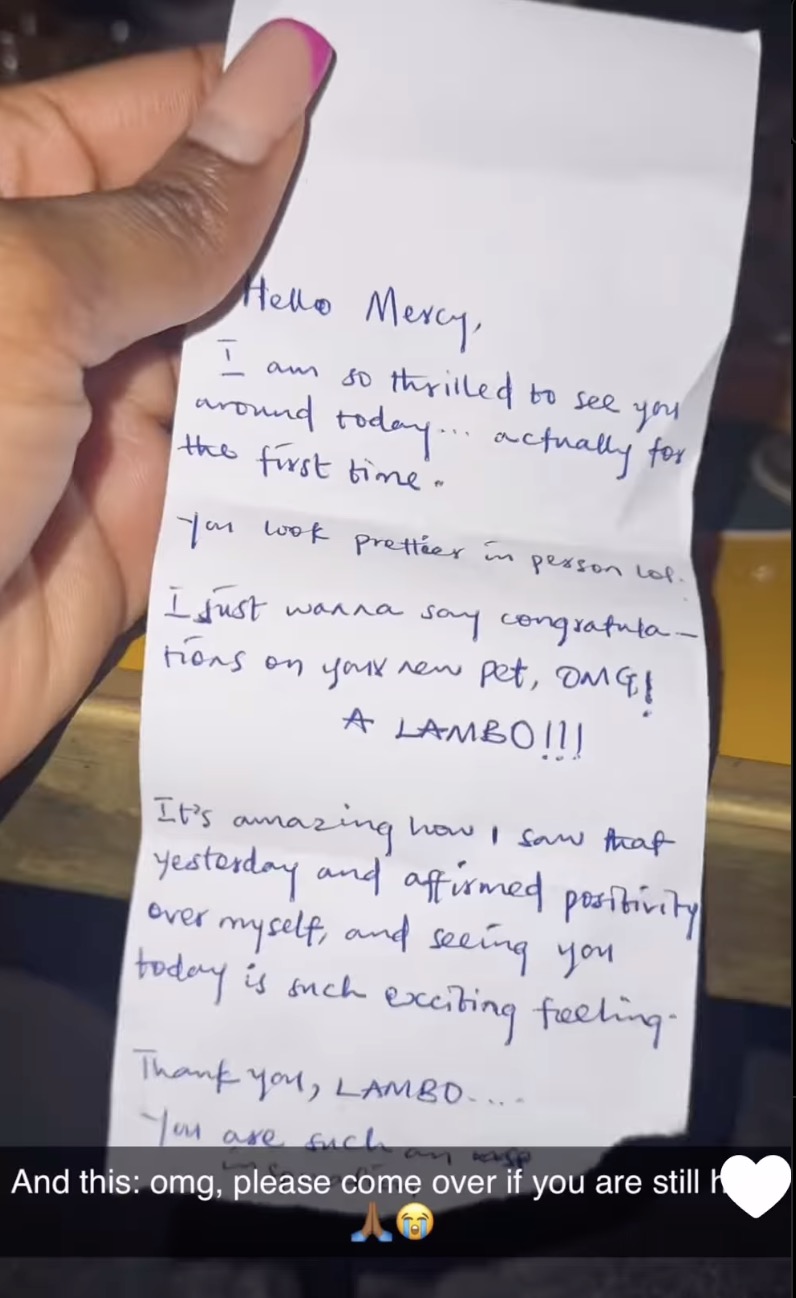 Hello Mercy,
I am so thrilled to see you
around today... actually for
the first time.
You look prettier in person lol.
I just wanna say congratula-
tions on your new pet, OMG!
A LAMBO!!!
It's amazing how I saw that
yesterday and affirmed positivity
over myself, and seeing you
today is such exciting feeling.
Thank you, LAMBO....
You are such an
And this: omg, please come over if you are still
🙏🏾😭